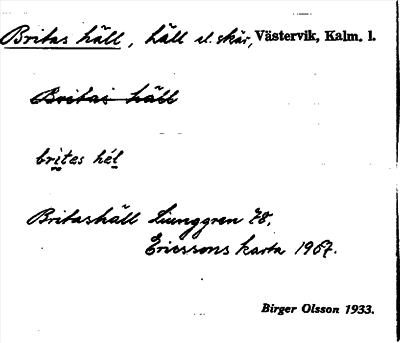 Britas häll, häll el. skär, Västervik, Kalm. l.
Britas häll
britas hél
Britashäll Ljunggren 78.
Ericssons karta 1907.
Birger Olsson 1933.